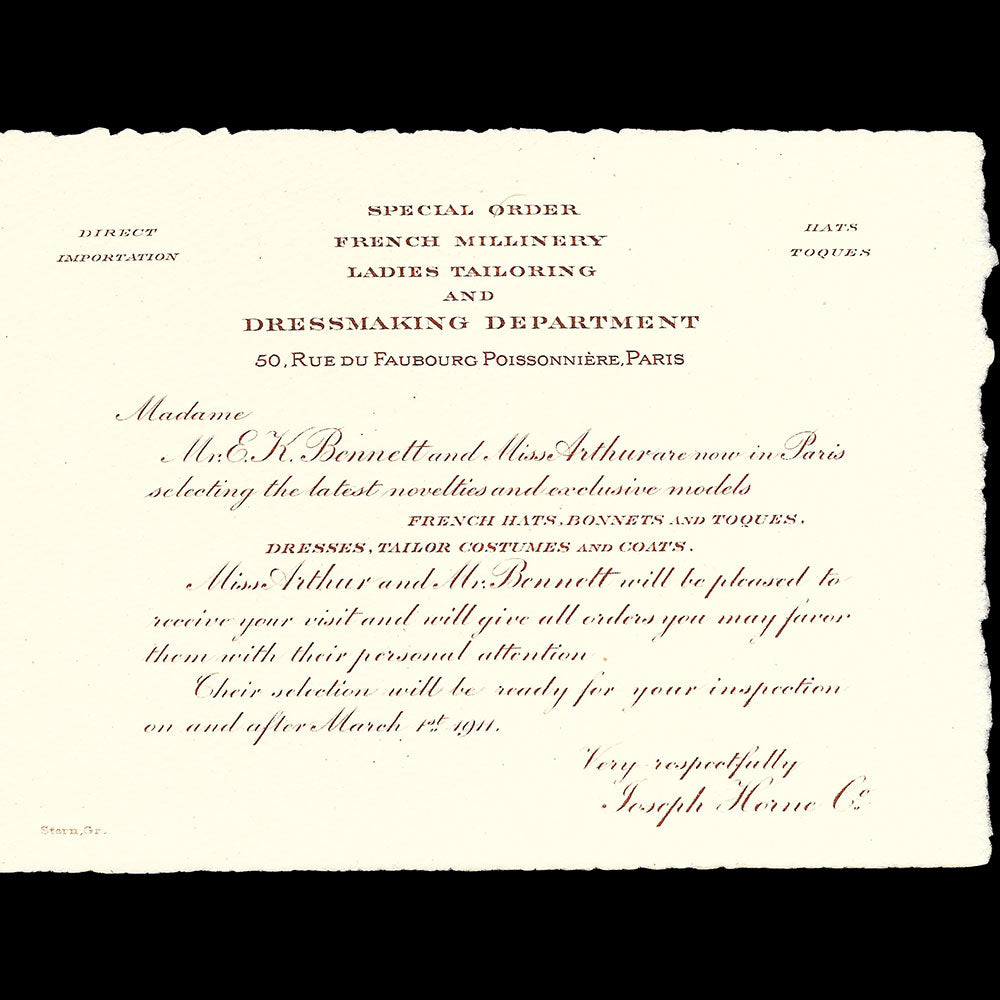 DIRECT
IMPORTATION
SPECIAL ORDER
FRENCH MILLINERY
LADIES TAILORING
AND
DRESSMAKING DEPARTMENT
50, RUE DU FAUBOURG POISSONNIÈRE, PARIS
HATS
TOQUES
Madame
Mr. E. K. Bennett and Miss Arthur are now in Paris
selecting the latest novelties and exclusive models
FRENCH HATS, BONNETS AND TOQUES,
DRESSES, TAILOR COSTUMES AND COATS.
Miss Arthur and Mr. Bennett will be pleased to
receive your visit and will give all orders you may favor
them with their personal attention
Their selection will be ready for your inspection
on and after March 1st 1911.
Very respectfully
Joseph Horne Co
Stern, Gr.